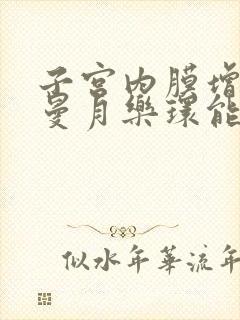 子宫内膜增
曼月乐环能
似水年华流年